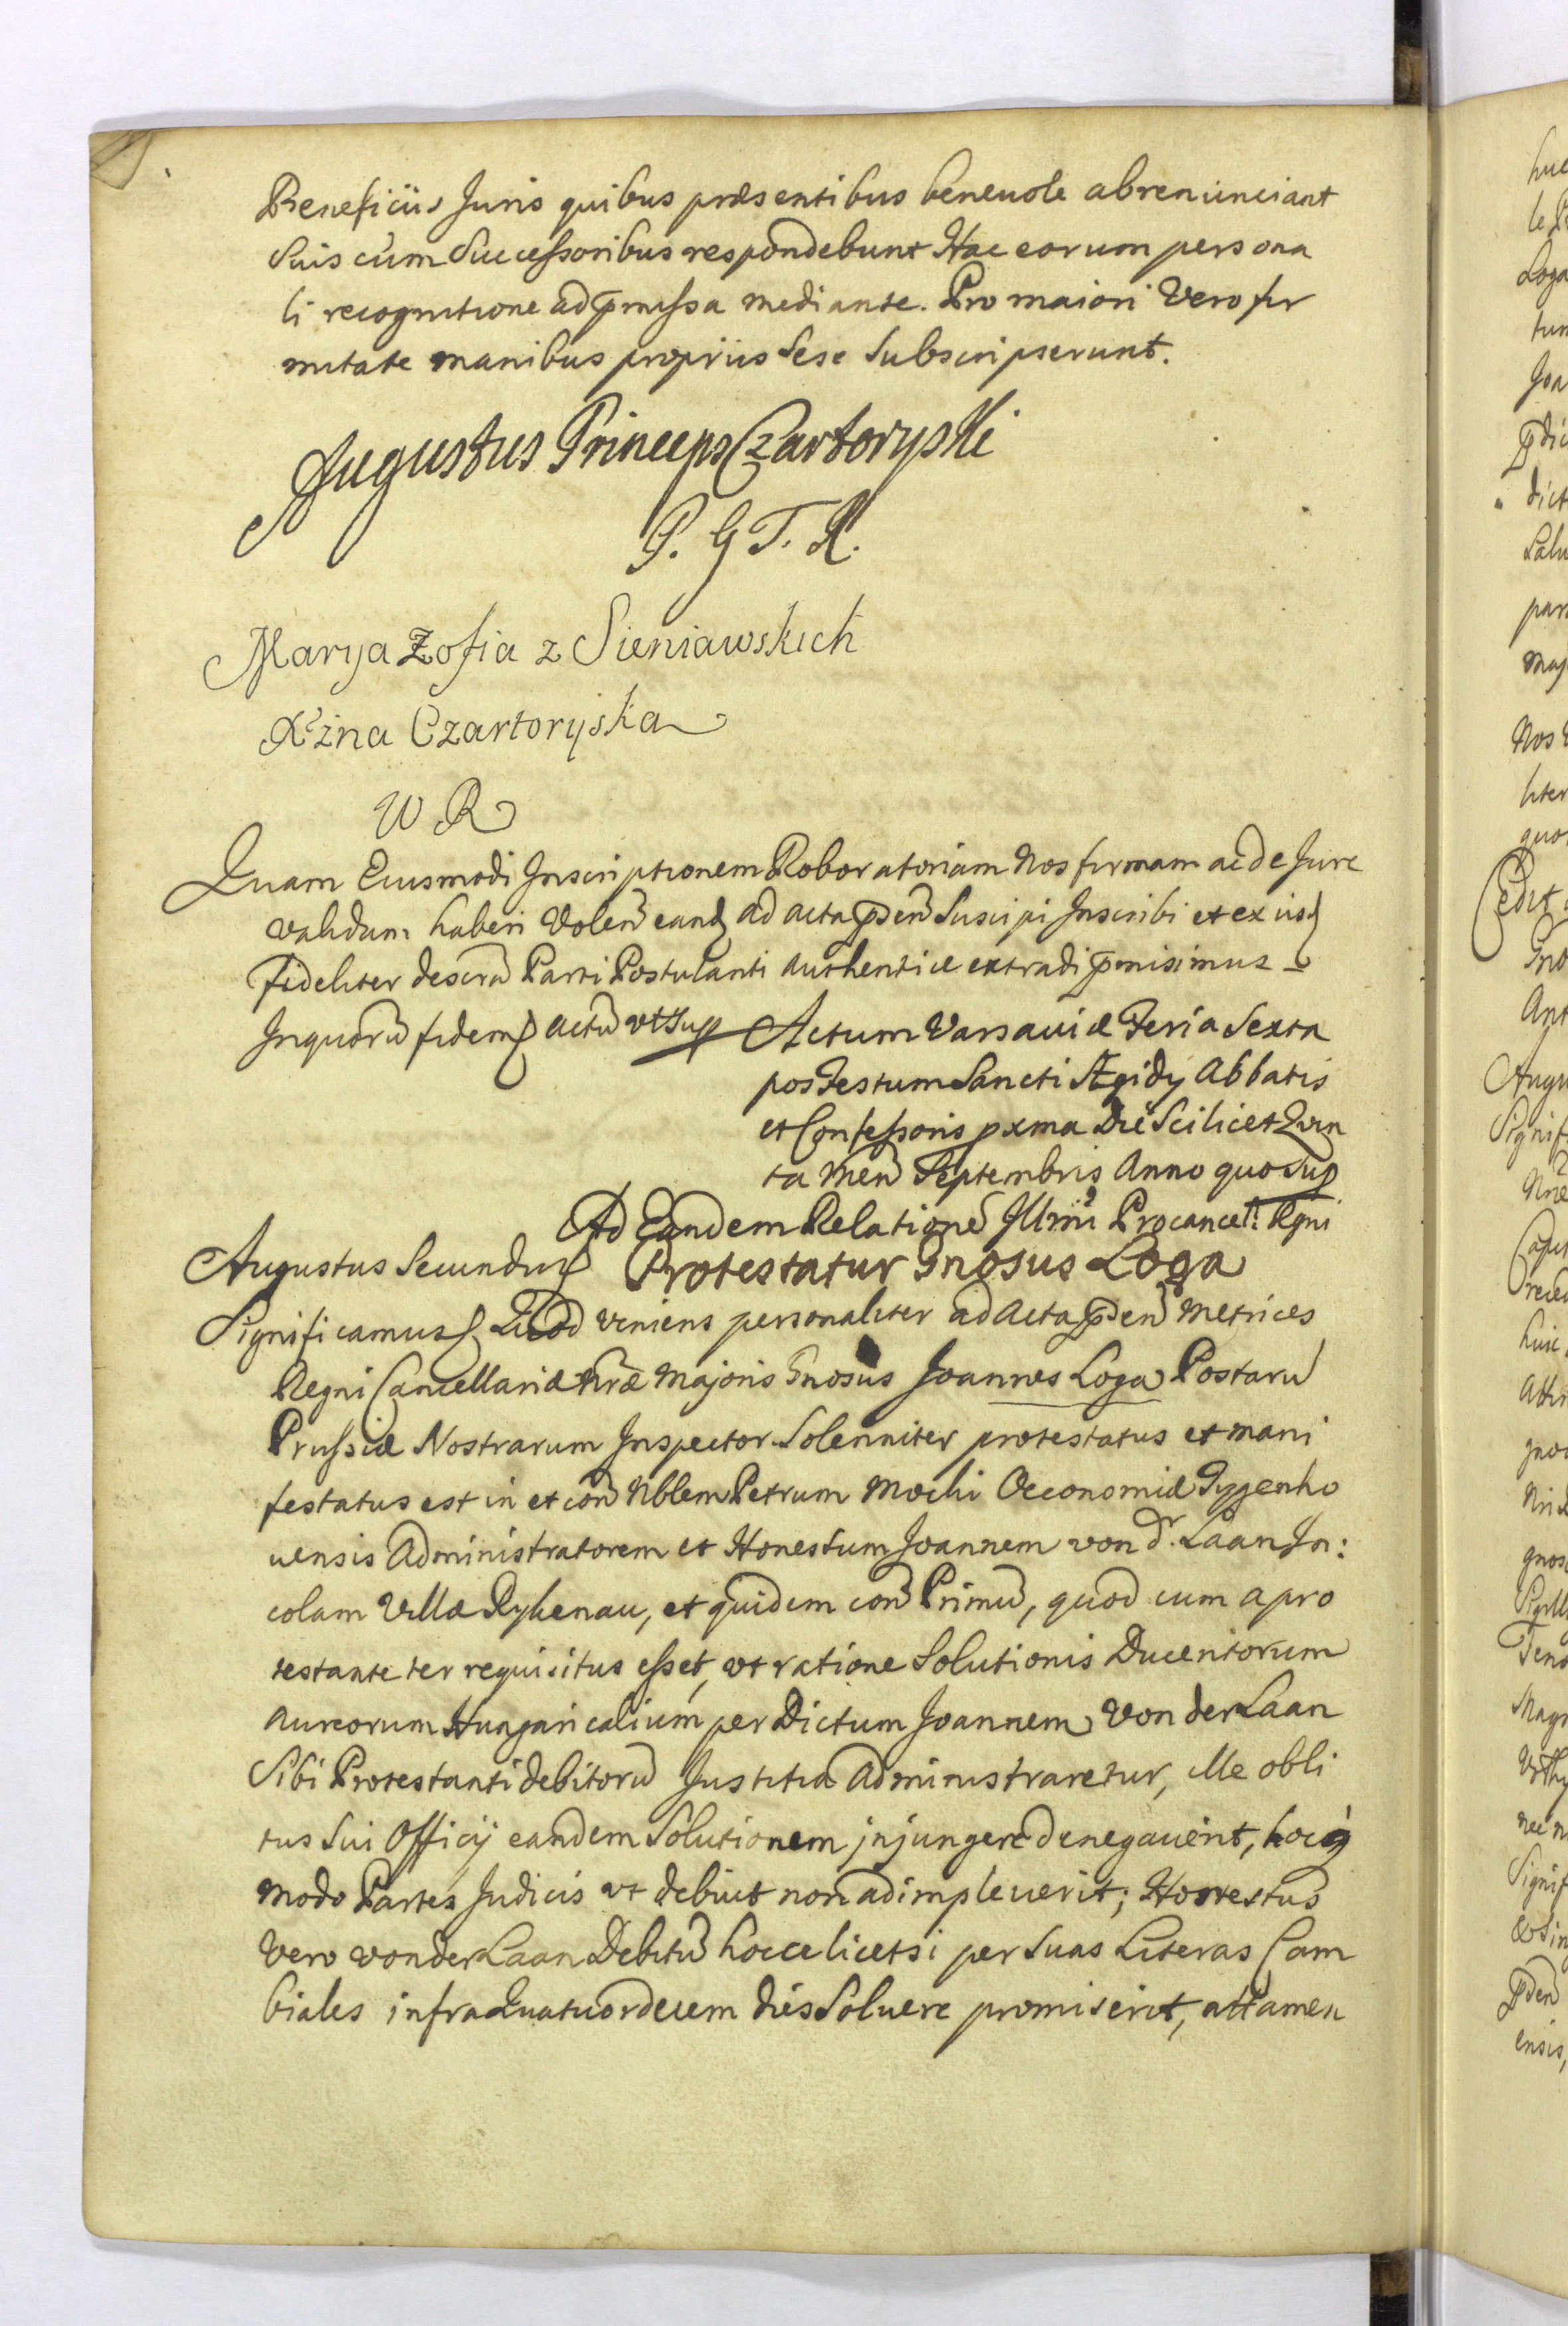 Beneficiis Juris quibus præsentibus beneuole abrenunciant
Suis cum Successoribus respondebunt Hac eorum persona
li recognitione ad p̄missa mediante. Pro maiori Vero fir
mitate manibus propriis Sese Subscripserunt.
Augustus Princeps Czartoryski
P. G T. R.
Marya Zofia z Sieniawskich
X'żna Czartoryska
W R
Quam Eiusmodi Inscriptionem Roboratoriam Nos firmam ac de Jure
validam haberi Volen̄ eand ad acta p̄sen̄ Suscipi Inscribi et ex iis
fideliter descrū Parti Postulanti authenticæ extradi p̄misimus
In quorū fidem actū vt Sup Actum Varsaviæ Feria Sexta
pos Festum Sancti Ægidy Abbatis
et Confessoris pxma Die Scilicet Quin
ta Men̄ Septembris Anno quo Sup
Ad Eandem Relationē Illmi Procancel: Rgni
Augustus Secundus Protestatur Gnosus Loga
Significamus Quod veniens personaliter ad acta p̄sen̄ Metrices
Regni Cancellariæ Nræ Majoris Gnosus Joannes Loga Postarū
Prussiæ Nostrarum Inspector Solenniter protestatus et mani
festatus est in et con̄ Nblem Petrum Mochi Oeconomiæ Tygenho
uensis Administratorem et Honestum Joannem von dr. Laan In:
colam Villæ Rykenau, et quidem con̄ Primū, quod cum a pro
testante ter requisitus esset, vt ratione Solutionis Ducentorum
Aureorum Hungaricalium per Dictum Joannem Von der Laan
Sibi Protestanti debitorū Justitia Administraretur, ille obli
tus Sui Officij eandem Solutionem injungere denegauerit, hocq
modo Partes Judicis vt debuit non adimpleuerit; Honestus
Vero von der Laan Debitū hocce licetsi per Suas Literas Cam
biales infra Quatuordecem dies Soluere promiserit, attamen